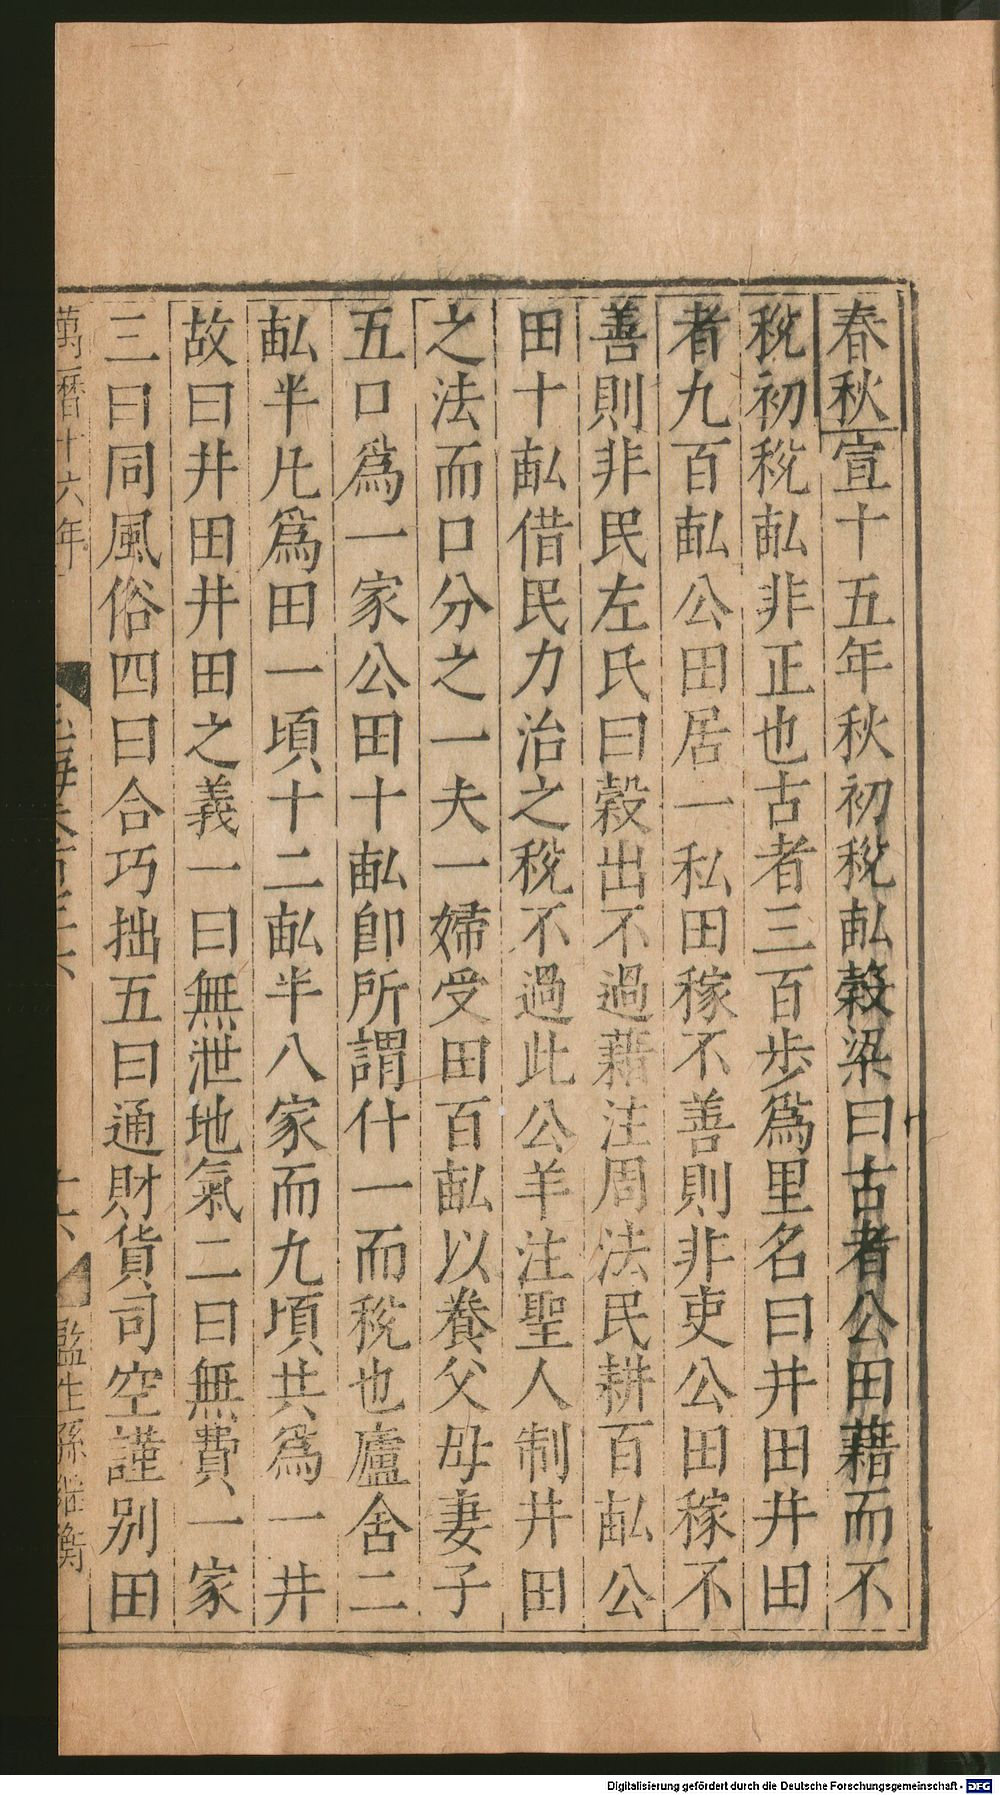 春秋宣十五年秋初稅畝穀梁曰古者公田藉而不
稅初稅畝非正也古者三百步爲里名曰井田井田
者九百畝公田居一私田稼不善則非吏公田稼不
善則非民左氏曰穀出不過藉注周法民耕百畝公
田十畝借民力治之稅不過此公羊注聖人制井田
之法而口分之一夫一婦受田百畝以養父母妻子
五口爲一家公田十畝卽所謂什一而稅也廬舍二
畝半凡爲田一頃十二畝半八家而九頃共爲一井
故曰井田井田之義一曰無泄地氣二曰無費一家
三曰同風俗四曰合巧拙五曰通財貨司空謹別田
萬曆十六年
十六
監生孫繼衡
Digitalisierung gefördert durch die Deutsche Forschungsgemeinschaft - DFG